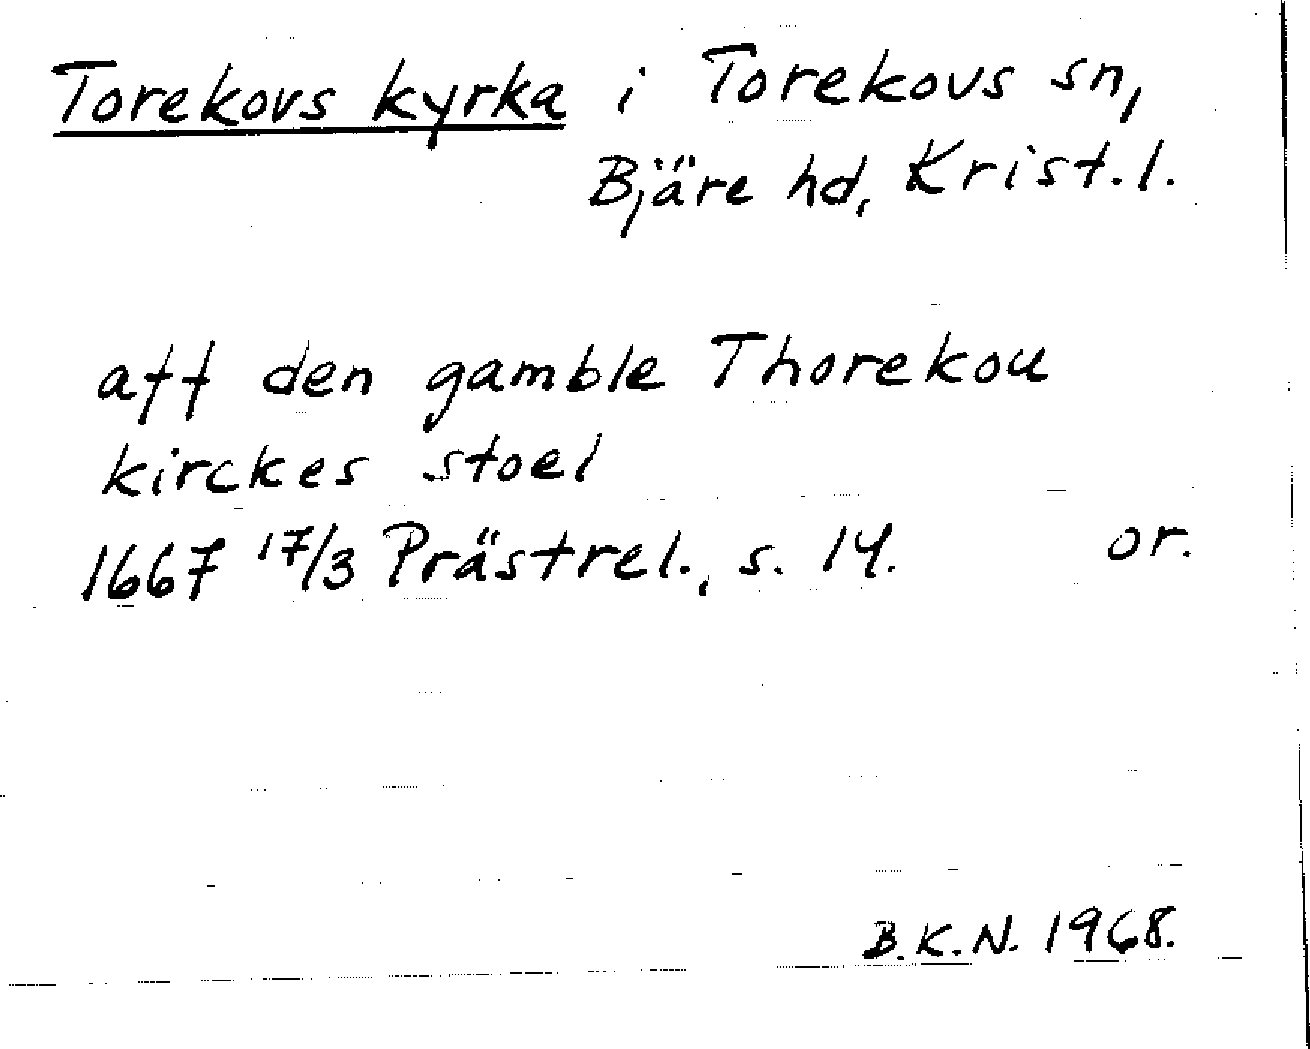 Torekovs kyrka i Torekovs sn,
Bjäre hd, Krist. l.
aff den gamble Thorekou
kirckes stoel
1667 17/3 Prästrel., s. 14. or.
B.K.N. 1968.